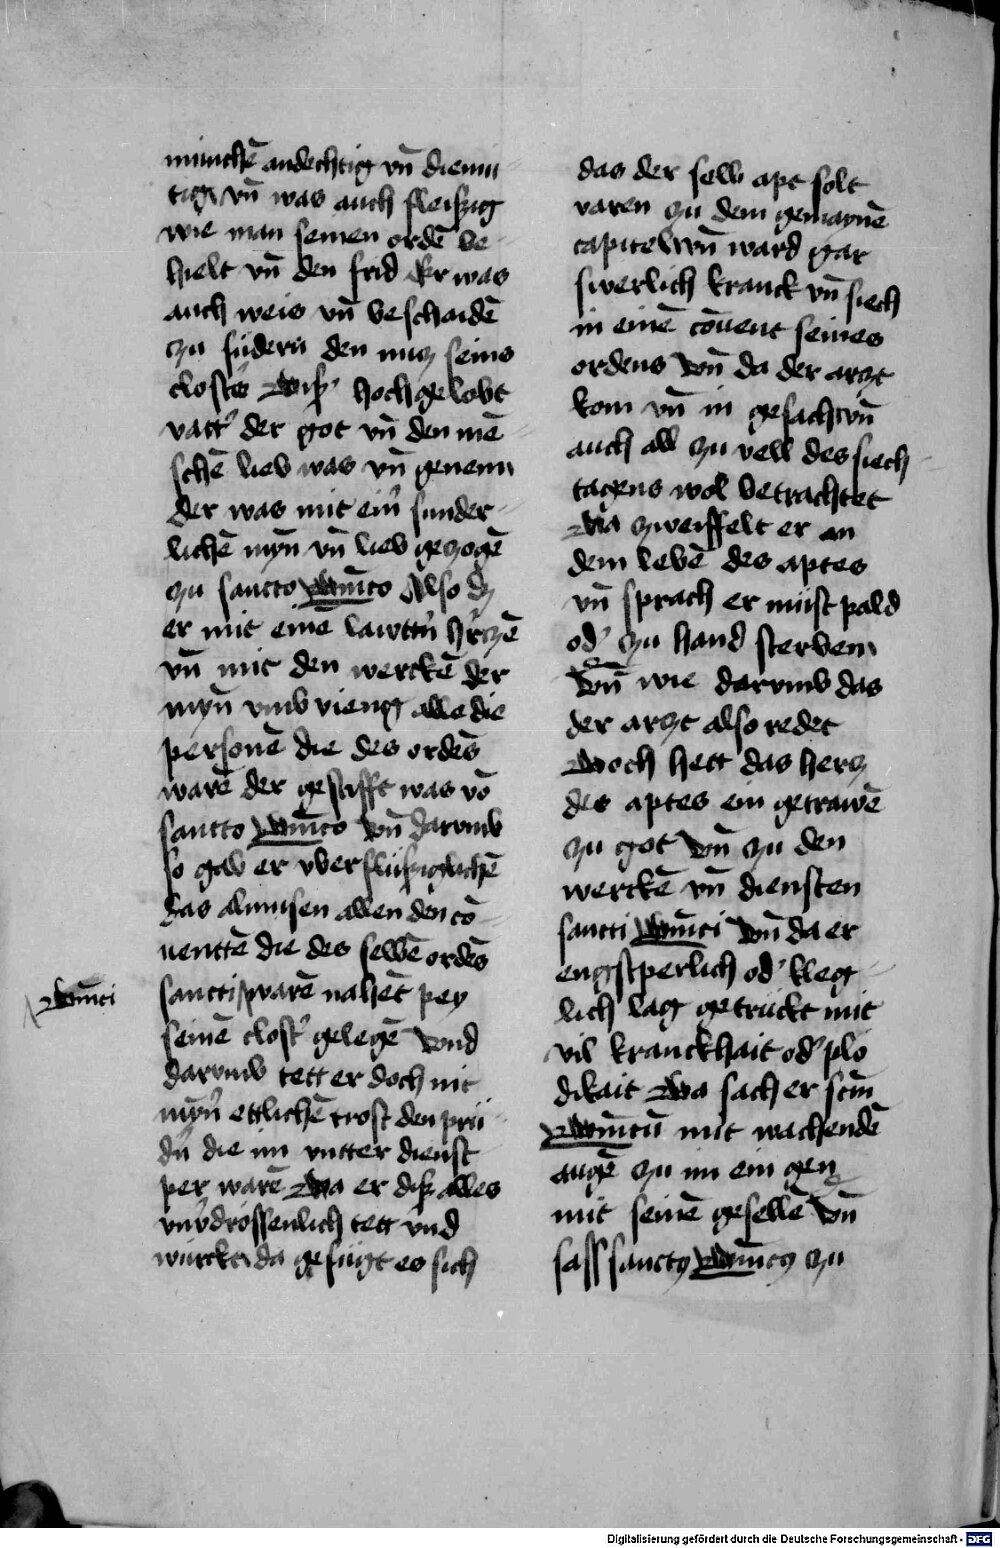 münchē andechtig vn̄ diemü
tig vn̄ was auch fleiszig
wie man seinen ordē be
hielt vn̄ den frid Er was
auch weis vn̄ beschaidē
zu füdern den nucz seins
closters Disz hochgelobt
vatt' der got vn̄ den mē
schē lieb was vn̄ genem
der was mit ein' sunder
lichē myn̄ vn̄ lieb gezogē
zu sancto Dm̄ico Also dz
er mit einē lawttn̄ h'czē
vn̄ mit den werckē der
myn̄ vmb vieng alle die
personē die des ordēs
warē der gestifft was vō
sancto Dm̄ico Vn̄ darvmb
so gab er vberflüsziglichē
das almusen allen den cō
uenttē die des selbē ordēs
sancti warē nahēt pey
Dm̄ici
seinē clost' gelegē Vnd
darvmb tett er doch nit
myn' ettlichē trost den prü
dn' die im vntter dienst
per warē Da er disz alles
vnv'drossenlich tett vnd
würckt da gefügt es sich
das der selb apt solt
varen zu dem gemaynē
capitel vn̄ ward gar
swerlich kranck vn̄ siech
in einē cōuent seines
ordens Vn̄ da der arzt
kom vn̄ in gesach vn̄
auch all zu vell des siech
tagens wol betrachtet
Da zweiffelt er an
dem lebē des aptes
vn̄ sprach er müst pald
od' zu hand sterben
Vn̄ wie darvmb das
der arzt also redet
Doch hett das hercz
des aptes ein getrawē
zu got Vn̄ zu den
werckē vn̄ diensten
sancti Dm̄ici Vn̄ da er
engstperlich od' kleg
lich lag getrückt mit
vil kranckhait od' plö
dikait Da sach er scm̄
Dm̄icū mit wachendē
augē zu im ein gen
mit seinē gesellē Vn̄
sass sanctus Dm̄icus zu
Digitalisierung gefördert durch die Deutsche Forschungsgemeinschaft - DFG